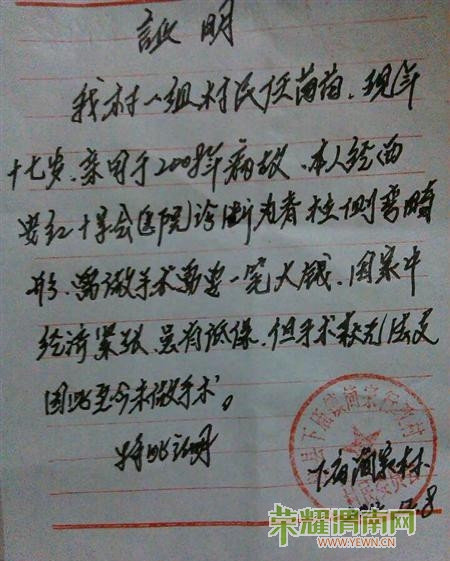 証明
我村一组村民任茵茵、现年
十七岁、亲用于2009年病故、本人经西
安红十字会医院诊断为脊柱侧弯畸
形、需做手术需要一笔大钱、因家中
经济紧张、虽有低保、但手术款无法支
因此至今未做手术。
特此证明
下庙简家村
7.8
荣耀渭南网
WWW.YEWN.CN